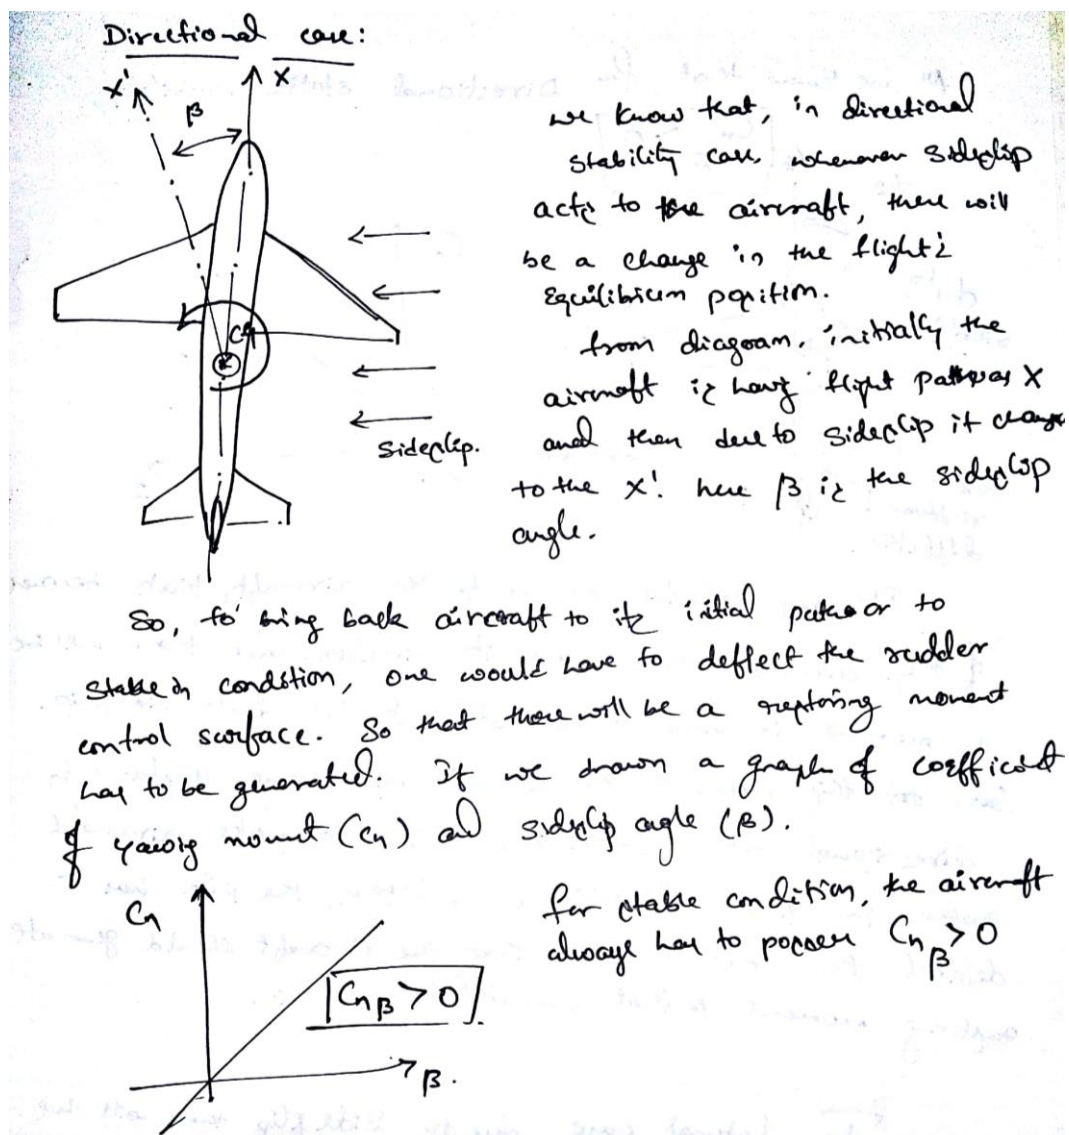 Directional case:
X'
X
β
CG
sideslip.
we know that, in directional
stability case, whenever sideslip
acts to the aircraft, there will
be a change in the flight's
Equilibrium position.
from diagram, initially the
aircraft is having flight path as X
and then due to sideslip it change
to the X'. here β is the sideslip
angle.
So, to bring back aircraft to its initial path or to
stable condition, one would have to deflect the rudder
control surface. So that there will be a restoring moment
has to be generated. If we drawn a graph of coefficient
of yawing moment (Cn) and sideslip angle (β).
Cn
Cnβ > 0
β.
for stable condition, the aircraft
always has to possess Cnβ > 0